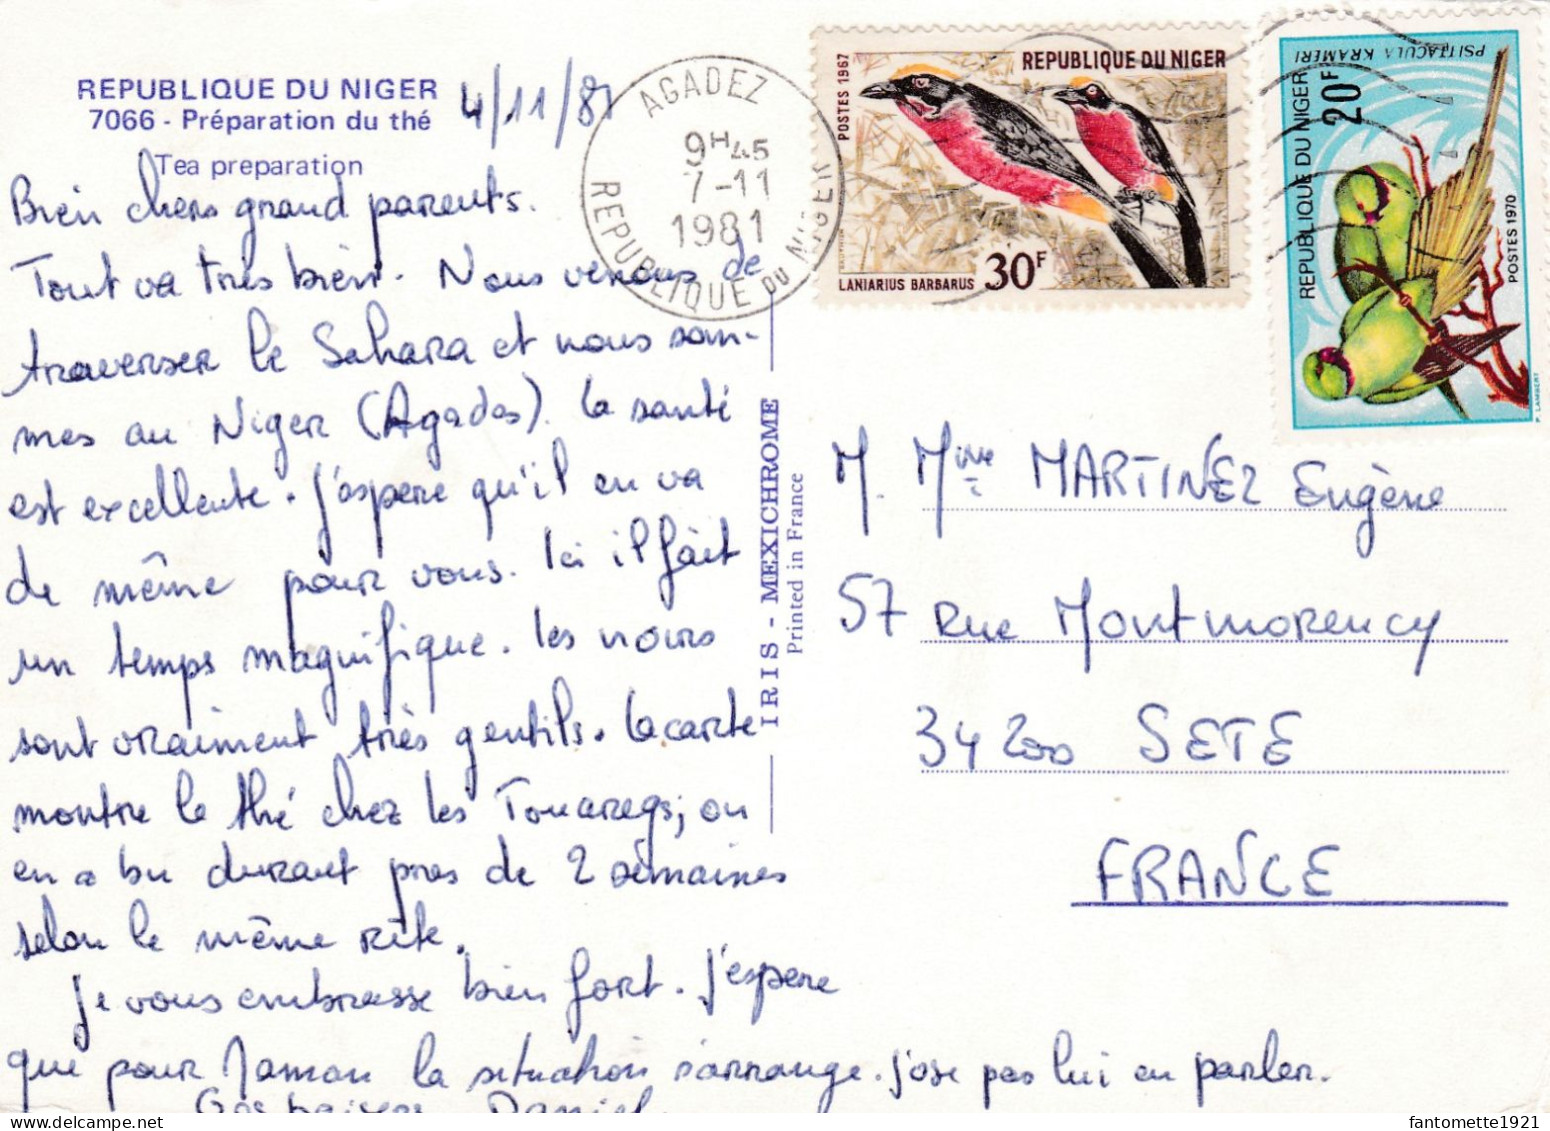 REPUBLIQUE DU NIGER
7066 - Préparation du thé
Tea preparation
4/11/81
Bien chers grand parents.
Tout va très bien. Nous venons de
traverser le Sahara et nous som-
mes au Niger (Agades). La santé
est excellente. J'espère qu'il en va
de même pour vous. Ici il fait
un temps magnifique. Les noirs
sont vraiment très gentils. La carte
montre le thé chez les Touaregs; on
en a bu durant près de 2 semaines
selon le même rite.
Je vous embrasse bien fort. J'espère
que pour Maman la situation s'arrange. J'ose pas lui en parler.
Gros baisers Daniel
IRIS - MEXICHROME
Printed in France
AGADEZ
9H45
7-11
1981
REPUBLIQUE DU NIGER
POSTES 1967
REPUBLIQUE DU NIGER
LANIARIUS BARBARUS 30F
PSITTACULA KRAMERI
REPUBLIQUE DU NIGER
20F
POSTES 1970
P. LAMBERT
M. Mme MARTINEZ Eugène
57 Rue Montmorency
34200 SETE
FRANCE
fantomette1921